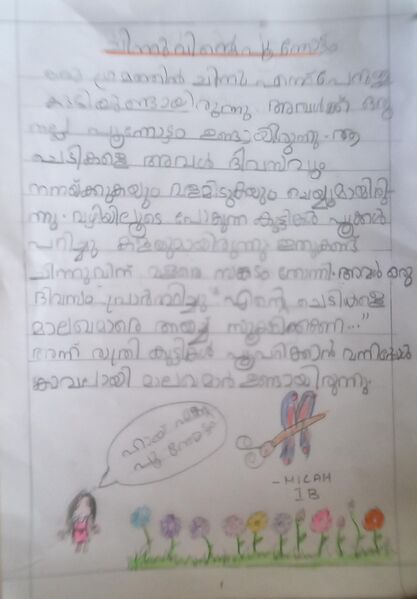 ചിന്നുവിന്റെ പൂന്തോട്ടം
ഒരു ഗ്രാമത്തിൽ ചിന്നു എന്ന് പേരുള്ള
കുട്ടിയുണ്ടായിരുന്നു അവൾക്ക് ഒരു
നല്ല പൂന്തോട്ടം ഉണ്ടായിരുന്നു. ആ
ചെടികളെ അവൾ ദിവസവും
നനയ്ക്കുകയും വളമിടുകയും ചെയ്യുമായിരു-
ന്നു. വഴിയിലൂടെ പോകുന്ന കുട്ടികൾ പൂക്കൾ
പറിച്ചു കളയുമായിരുന്നു ഇതുകണ്ട്
ചിന്നുവിന് വളരെ സങ്കടം തോന്നി. അവൾ ഒരു
ദിവസം പ്രാർത്ഥിച്ചു "എന്റെ ചെടികളെ
മാലഖമാരെ അയച്ച് സൂക്ഷിക്കണേ..."
അന്ന് രാത്രി കുട്ടികൾ പൂപറിക്കാൻ വന്നപ്പോൾ
കാവലായി മാലഖമാർ ഉണ്ടായിരുന്നു.
ഹായ്
പൂന്തോട്ടം
- MICAH
I B